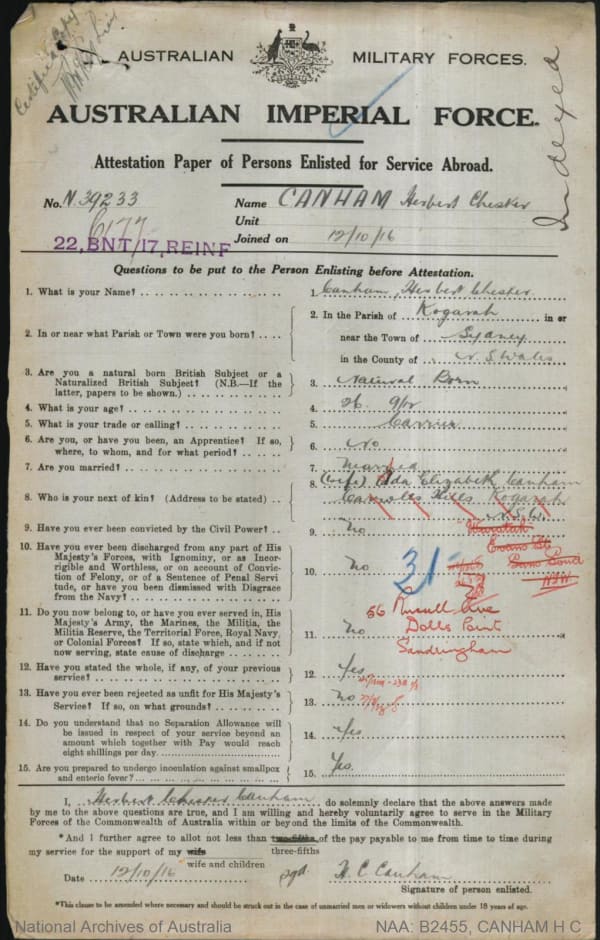 Certified Copy
AUSTRALIAN MILITARY FORCES.
AUSTRALIAN IMPERIAL FORCE.
Indexed
Attestation Paper of Persons Enlisted for Service Abroad.
No. N.39233 Name CANHAM Herbert Chester
6177 Unit
22, BNT/17, REINF Joined on 12/10/16
Questions to be put to the Person Enlisting before Attestation.
1. What is your Name? 1. Canham, Herbert Chester
2. In or near what Parish or Town were you born? 2. In the Parish of Kogarah in or
near the Town of Sydney
in the County of N.S.Wales
3. Are you a natural born British Subject or a
Naturalized British Subject? (N.B.—If the
latter, papers to be shown.) 3. Natural Born
4. What is your age? 4. 26 9/12
5. What is your trade or calling? 5. Carrier
6. Are you, or have you been, an Apprentice? If so,
where, to whom, and for what period? 6. No
7. Are you married? 7. Married
8. Who is your next of kin? (Address to be stated) 8. (wife) Ada Elizabeth Canham
Hills Kogarah
N.S.W.
9. Have you ever been convicted by the Civil Power? 9. No
Evans St
10. Have you ever been discharged from any part of His
Majesty's Forces, with Ignominy, or as Incor-
rigible and Worthless, or on account of Convic-
tion of Felony, or of a Sentence of Penal Servi
tude, or have you been dismissed with Disgrace
from the Navy? 10. No
31
NSW
56 Russell Ave
Dolls Point
Sandringham
11. Do you now belong to, or have you ever served in, His
Majesty's Army, the Marines, the Militia, the
Militia Reserve, the Territorial Force, Royal Navy
or Colonial Forces? If so, state which, and if not
now serving, state cause of discharge 11. No
12. Have you stated the whole, if any, of your previous
service? 12. Yes
13. Have you ever been rejected as unfit for His Majesty's
Service? If so, on what grounds? 13. No
14. Do you understand that no Separation Allowance will
be issued in respect of your service beyond an
amount which together with Pay would reach
eight shillings per day. 14. Yes
15. Are you prepared to undergo inoculation against smallpox
and enteric fever? 15. Yes.
I, Herbert Chester Canham do solemnly declare that the above answers made
by me to the above questions are true, and I am willing and hereby voluntarily agree to serve in the Military
Forces of the Commonwealth of Australia within or beyond the limits of the Commonwealth.
*And I further agree to allot not less than two-fifths of the pay payable to me from time to time during
my service for the support of my wife three-fifths
wife and children
Date 12/10/16 sgd. H. C Canham
Signature of person enlisted.
*This clause to be amended where necessary and should be struck out in the case of unmarried men or widowers without children under 18 years of age.
National Archives of Australia NAA: B2455, CANHAM H C